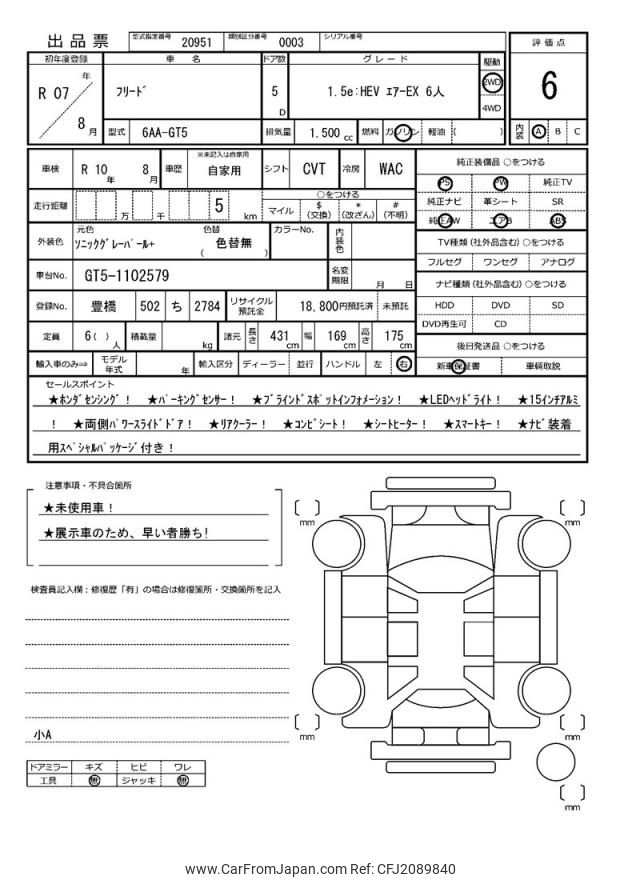 出品票 型式指定番号 20951 類別区分番号 0003 シリアル番号
評価点
6
内装 A B C
初年度登録 車名 ドア数 グレード 駆動
R 07 年 8 月 ﾌﾘｰﾄﾞ 5 D 1.5e:HEV ｴｱｰEX 6人 2WD
4WD
型式 6AA-GT5 排気量 1.500 cc 燃料 ガソリン 軽油 ( )
車検 R 10 年 8 月 車歴 ※未記入は自家用 自家用 シフト CVT 冷房 WAC
純正装備品 ○をつける
PS PW 純正TV
純正ナビ 革シート SR
純正AW エアB ABS
走行距離 万 千 5 km ○をつける
マイル $(交換) *(改ざん) #(不明)
外装色 元色 ｿﾆｯｸｸﾞﾚｰﾊﾟｰﾙ+ 色替 ( 色替無 ) カラーNo. 内装色
TV種類(社外品含む)○をつける
フルセグ ワンセグ アナログ
車台No. GT5-1102579 名変期限 月 日
ナビ種類(社外品含む)○をつける
HDD DVD SD
DVD再生可 CD
登録No. 豊橋 502 ち 2784 リサイクル預託金 18,800円預託済 未預託
定員 6( ) 人 積載量 kg 諸元 長さ 431 cm 幅 169 cm 高さ 175 cm
後日発送品 ○をつける
新車保証書 車輌取説
輸入車のみ⇒ モデル年式 年 輸入区分 ディーラー 並行 ハンドル 左 右
セールスポイント
★ﾎﾝﾀﾞｾﾝｼﾝｸﾞ！ ★ﾊﾟｰｷﾝｸﾞｾﾝｻｰ！ ★ﾌﾞﾗｲﾝﾄﾞｽﾎﾟｯﾄｲﾝﾌｫﾒｰｼｮﾝ！ ★LEDﾍｯﾄﾞﾗｲﾄ！ ★15ｲﾝﾁｱﾙﾐ
！ ★両側ﾊﾟﾜｰｽﾗｲﾄﾞﾄﾞｱ！ ★ﾘｱｸｰﾗｰ！ ★ｺﾝﾋﾞｼｰﾄ！ ★ｼｰﾄﾋｰﾀｰ！ ★ｽﾏｰﾄｷｰ！ ★ﾅﾋﾞ装着
用ｽﾍﾟｼｬﾙﾊﾟｯｹｰｼﾞ付き！
注意事項・不具合箇所
★未使用車！
★展示車のため、早い者勝ち!
検査員記入欄：修復歴「有」の場合は修復箇所・交換箇所を記入
小A
ドアミラー キズ ヒビ ワレ
工具 無 ジャッキ 無
mm
mm
mm
mm
mm
www.CarFromJapan.com Ref: CFJ2089840